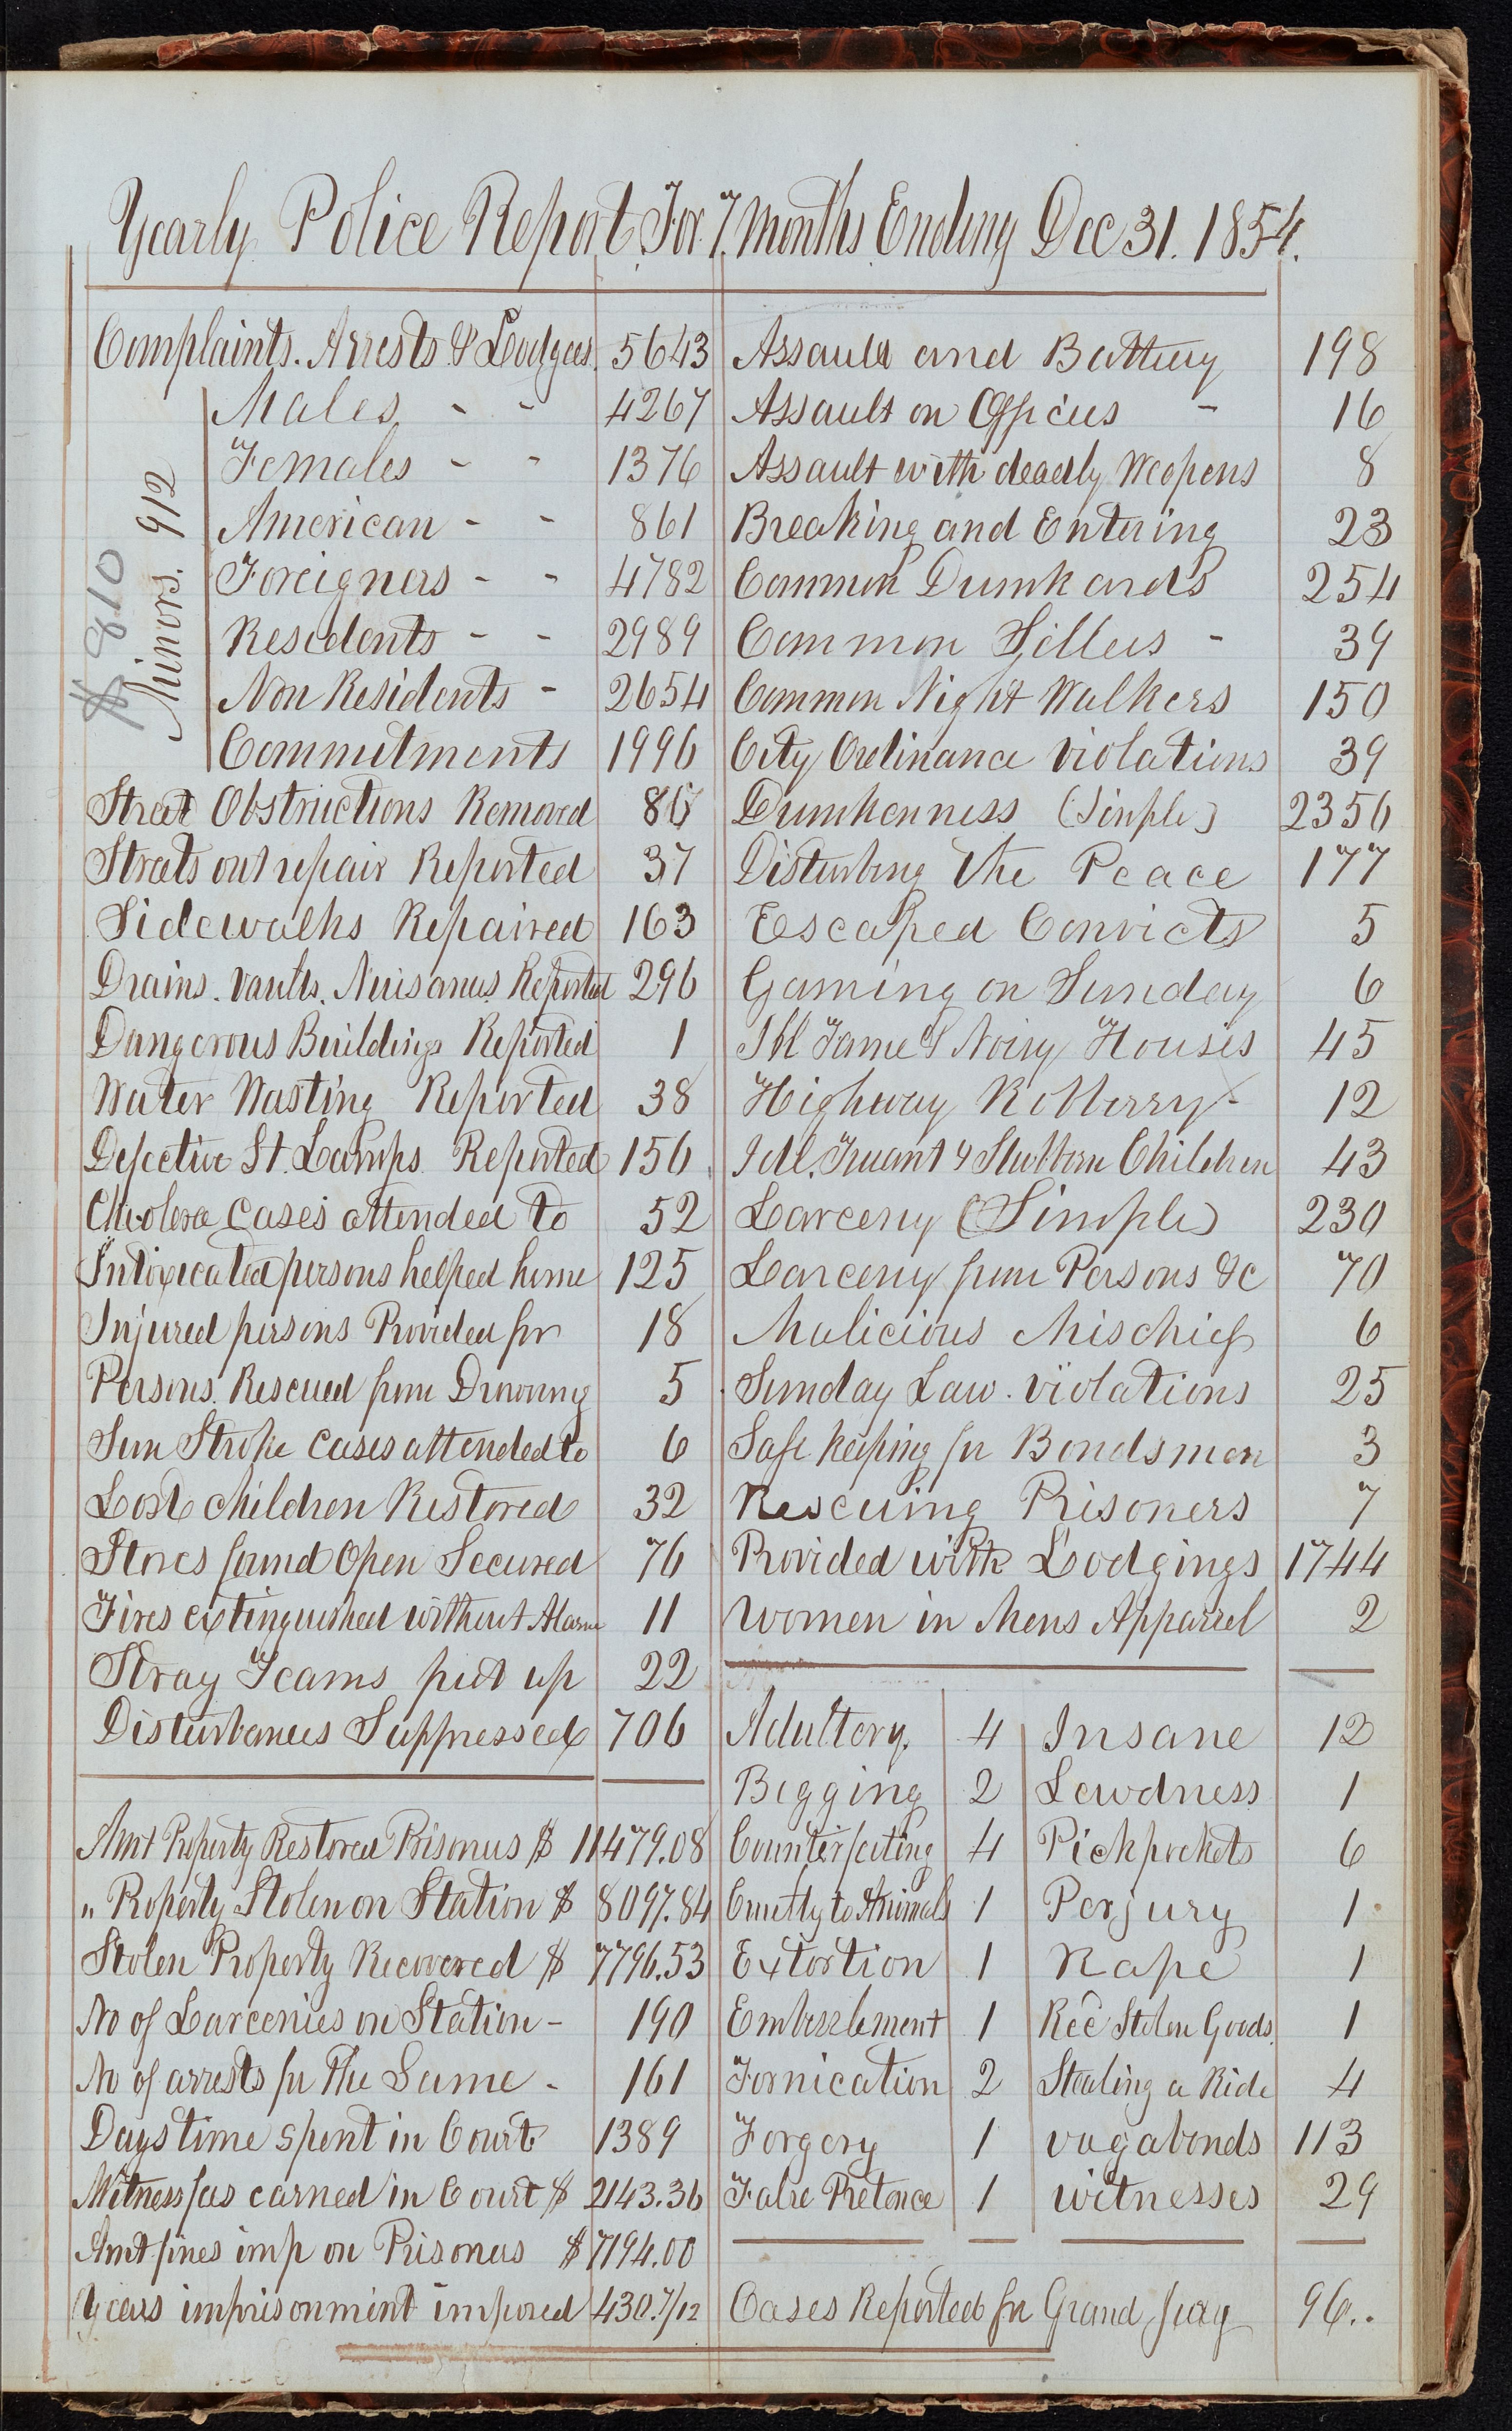 Yearly Police Report For 7 Months Ending Dec 31. 1854.
Complaints. Arrests & Lodgers. 5643
Males - - 4267
Females - - 1376
American - - 861
Foreigners - - 4782
Residents - - 2989
Non Residents - 2654
Commitments 1996
Minors. 912
$ 810
Street Obstructions Removed
Streets out repair Reported 37
Sidewalks Repaired 163
Drains. Vaults. Nuisances Reported 296
Dangerous Buildings Reported 1
Water Wasting Reported 38
Defective St. Lamps Reported 156
Cholera Cases attended to 52
Intoxicated persons helped home 125
Injured persons Provided for 18
Persons. Rescued from Drowning 5
Sun Stroke Cases attended to 6
Lost children Restored 32
Stores found Open Secured 76
Fires extinguished without Alarm 11
Stray Teams put up 22
Disturbances Suppressed 706
Amt Property Restored Prisoners $ 11479.08
" Property Stolen on Station $ 8097.84
Stolen Property Recovered $ 7796.53
No of Larcenies on Station - 190
No of arrests for The Same - 161
Days time spent in Court 1389
Witness fees earned in Court $ 2143.36
Amt fines imp on Prisoners $ 7194.00
Years imprisonment imposed 430.7/12
Assault and Battery 198
Assault on Officers - 16
Assault with deadly Weopens 8
Breaking and Entering 23
Common Drunkards 254
Common Sellers - 39
Common Night Walkers 150
City Ordinance Violations 39
Drunkenness (Simple) 2356
Disturbing the Peace 177
Escaped Convicts 5
Gaming on Sunday 6
Ill Fame & Noisy Houses 45
Highway Robberry - 12
Idle. Truant & Stubborn Children 43
Larceny (Simple) 230
Larceny from Persons &c 70
Malicious Mischief 6
Sunday Law. violations 25
Safe keeping for Bondsmen 3
Rescuing Prisoners 7
Provided with Lodgings 1744
Women in Mens Apparrel 2
Adultery. 4 Insane 12
Begging 2 Lewdness 1
Counterfeiting 4 Pickpockets 6
Cruelty to Animals 1 Perjury 1
Extortion 1 Rape 1
Embezzlement 1 Rec Stolen Goods 1
Fornication 2 Stealing a Ride 4
Forgery 1 vagabonds 113
False Pretence 1 witnesses 29
Cases Reported for Grand Jury 96..